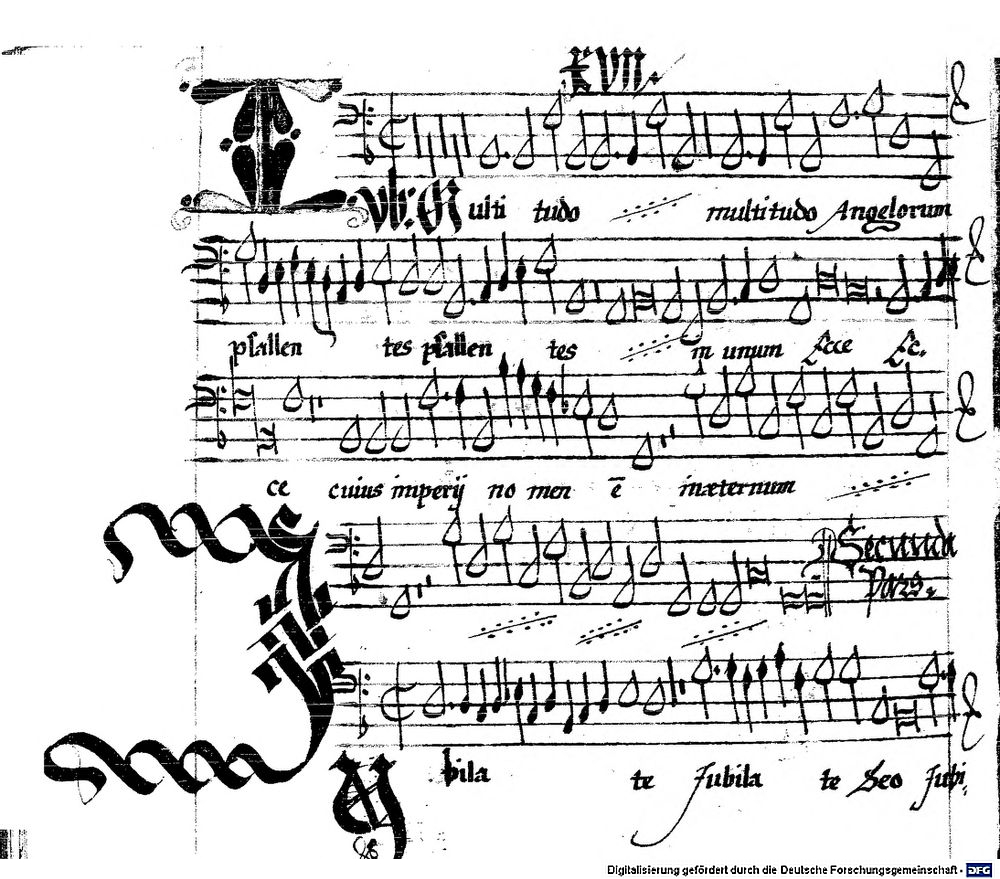 XVII.
Vb: Multi tudo multitudo Angelorum
psallen tes psallen tes in unum Ecce Ec.
ce cuius imperij no men ē inæternum
Secunda
Pars.
bila te Jubila te Deo Jubi
Digitalisierung gefördert durch die Deutsche Forschungsgemeinschaft - DFG